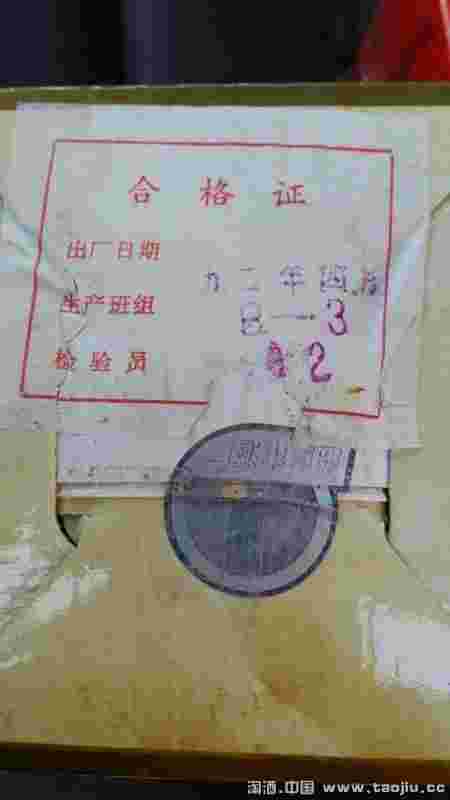 合格证
出厂日期 九二年四月
生产班组 8—3
检验员 42
淘酒.中国 www.taojiu.cc